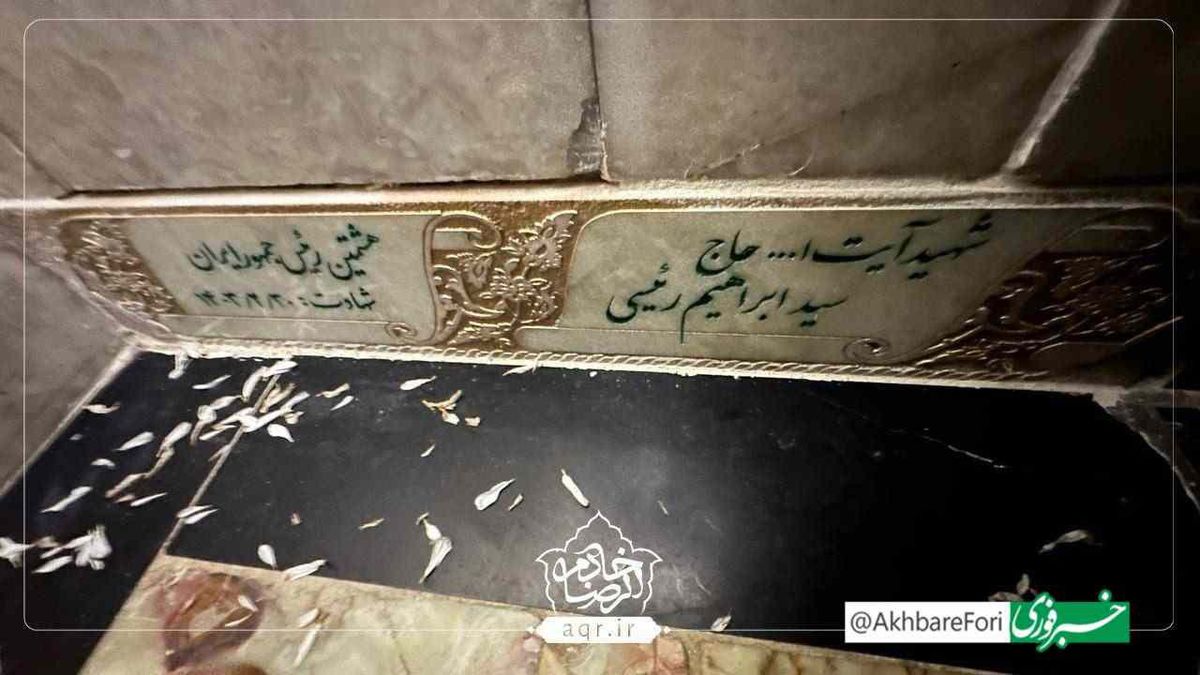 شهید آیت ا... حاج
سید ابراهیم رئیسی
هشتمین رئیس جمهور ایران
شهادت: ۱۴۰۳/۲/۳۰
خادم الرضا
aqr.ir
@AkhbareFori
خبرفوری